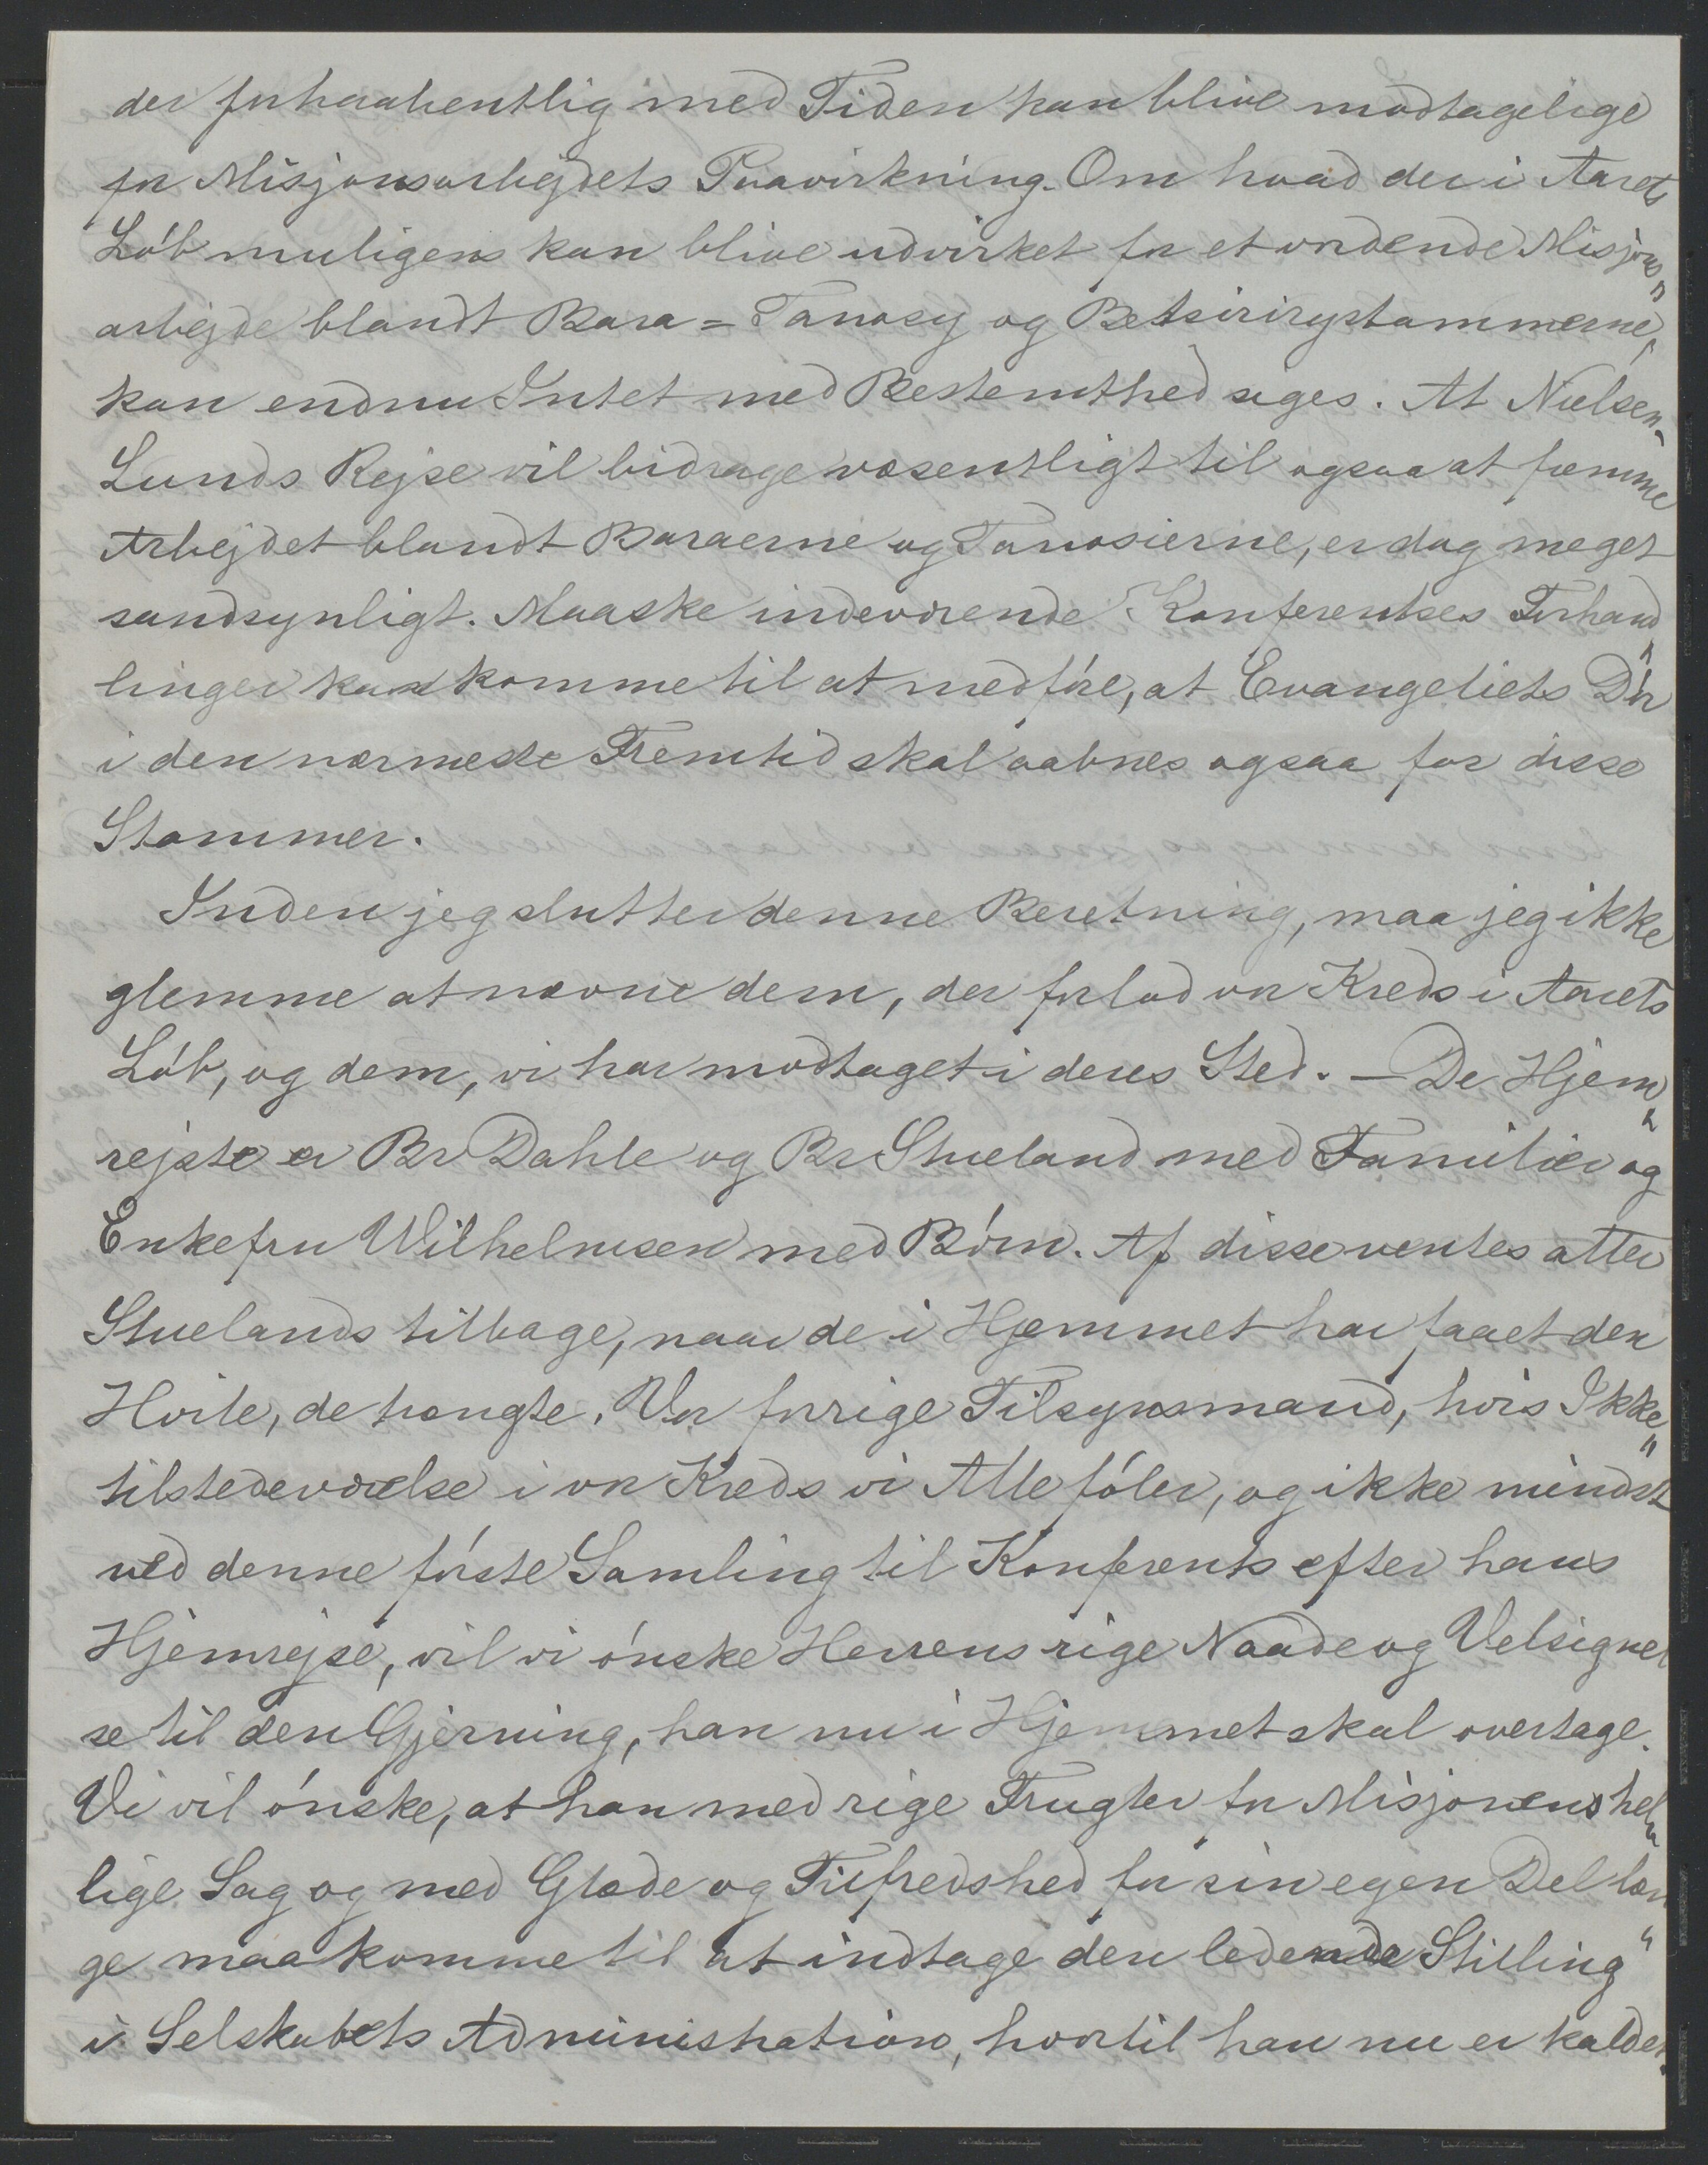 der forhaabentlig med Tiden kan blive modtagelige
for Misjonsarbejdets Paavirkning. Om hvad der i Aarets
Løb muligens kan blive udvirket for et vordende Misjons„
arbejde blandt Bara= Tanosy og Betsirirystammerne,
kan endnu Intet med Bestemthed siges. At Nielsen-
Lunds Rejse vil bidrage væsentligt til ogsaa at fremme
Arbejdet blandt Baraerne og Tanosierne, er dog meget
sandsynligt. Maaske indeværende Konferentses Forhand„
linger kan komme til at medføre, at Evangeliets Dør
i den nærmeste Fremtid skal aabnes ogsaa for disse
Stammer.
Inden jeg slutter denne Beretning, maa jeg ikke
glemme at nævne dem, der forlod vor Kreds i Aarets
Løb, og dem, vi har modtaget i deres Sted. — De Hjem„
rejste er Br Dahle og Br Stueland med Familier og
Enkefru Wilhelmsen med Børn. Af disse ventes atter
Stuelands tilbage, naar de i Hjemmet har faaet den
Hvile, de trængte. Vor forrige Tilsynsmand, hvis Ikke„
tilstedeværelse i vor Kreds vi Alle føler, og ikke mindst
ved denne første Samling til Konferents efter hans
Hjemrejse, vil vi ønske Herrens rige Naade og Velsignel
se til den Gjerning, han nu i Hjemmet skal overtage.
Vi vil ønske, at han med rige Frugter for Misjonens hel„
lige Sag og med Glæde og Tilfredshed for sin egen Del læn„
ge maa komme til at indtage den ledende Stilling
i Selskabets Administration, hvortil han nu er kaldet.